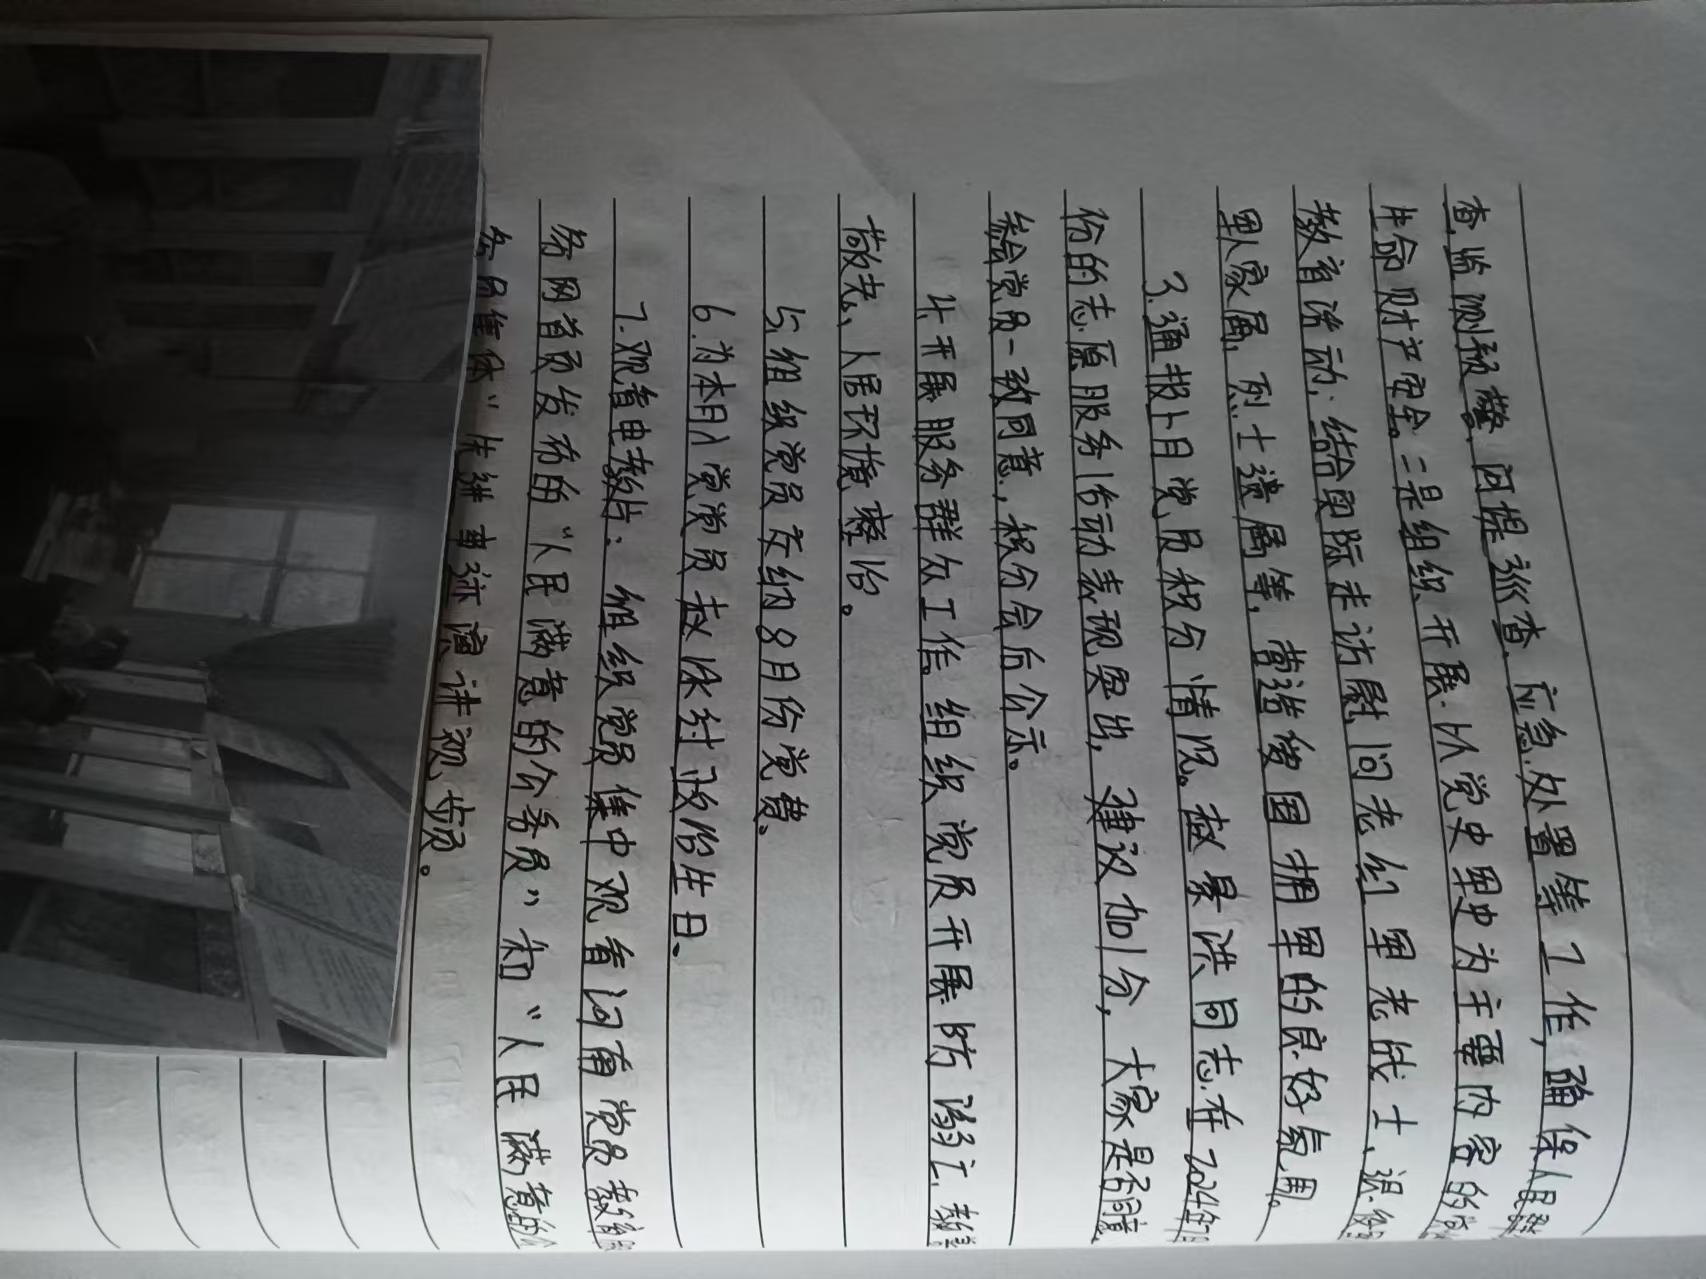 查监测预警、河堤巡查、应急处置等工作，确保人民群
生命财产安全。二是组织开展以党史军史为主要内容的
教育活动；结合实际走访慰问老红军老战士、退役
军人家属，烈士遗属等，营造爱国拥军的良好氛围。
3.通报7月党员积分情况。赵景洪同志在2024年7月
份的志愿服务活动表现突出，建议加1分，大家是否同意
综合党员一致同意，积分会后公示。
4.开展服务群众工作。组织党员开展防溺亡、
人居环境整治。
5.组织党员交纳8月份党费。
6.为本月入党党员赵保村政治生日。
7.观看电教片：组织党员集中观看河南党员教育
务网首页发布的“人民满意的公务员”和“人民满意的公
务员集体”先进事迹演讲视频。